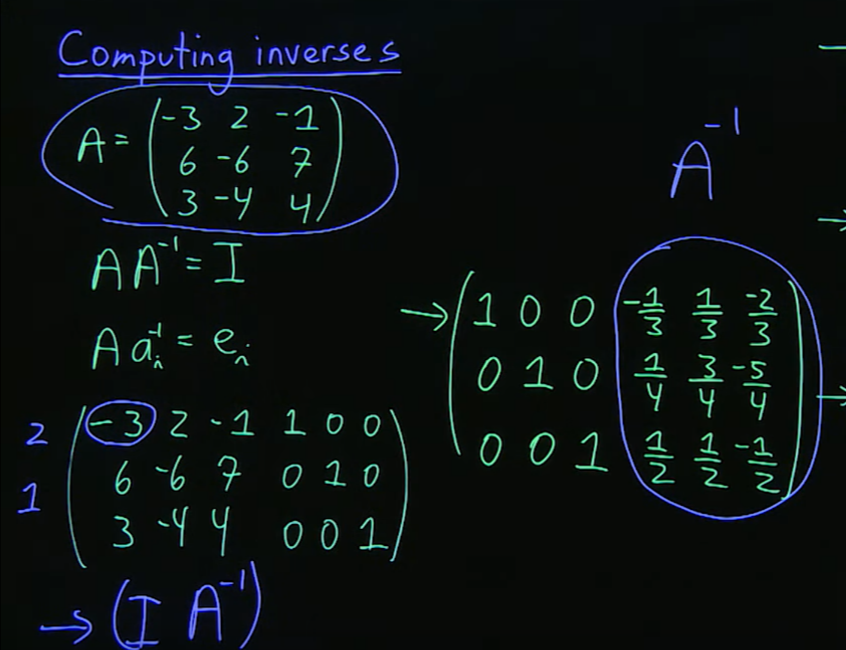 Computing inverses
A = (-3 2 -1
6 -6 7
3 -4 4)
A A⁻¹ = I
A aᵢ⁻¹ = eᵢ
2 (-3 2 -1 1 0 0
1 6 -6 7 0 1 0
3 -4 4 0 0 1)
→ (I A⁻¹)
A⁻¹
→ (1 0 0 -1/3 1/3 -2/3
0 1 0 1/4 3/4 -5/4
0 0 1 1/2 1/2 -1/2)